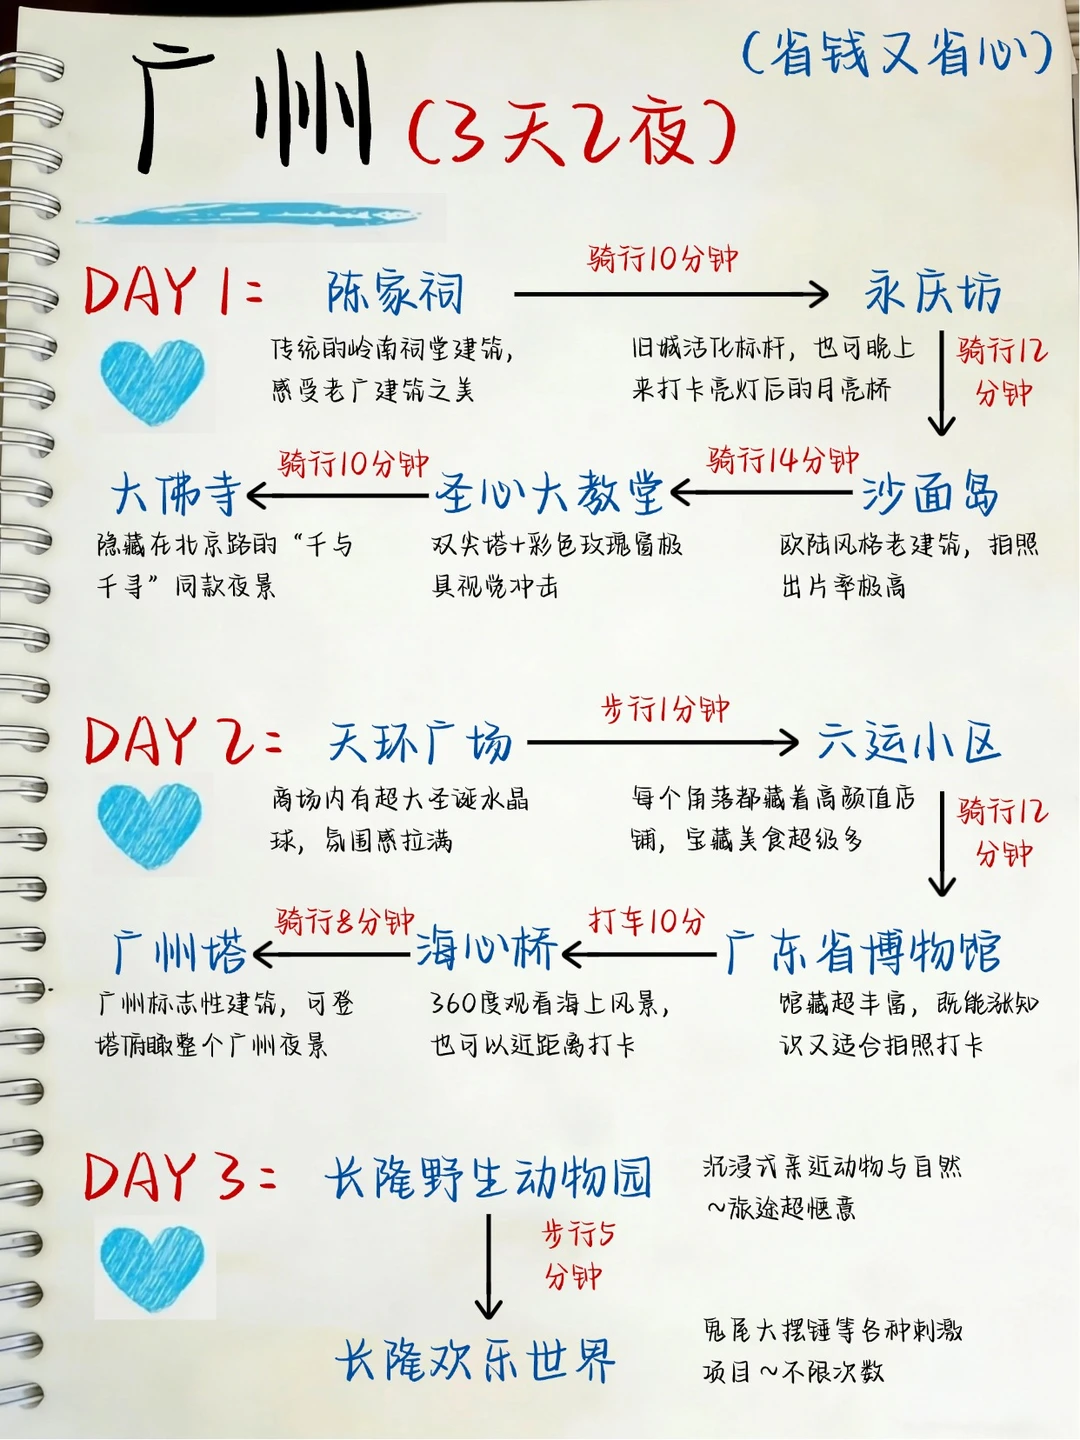 (省钱又省心)
广州(3天2夜)
DAY 1:
陈家祠
骑行10分钟
永庆坊
传统的岭南祠堂建筑,
感受老广建筑之美
旧城活化标杆,也可晚上
来打卡亮灯后的月亮桥
骑行12
分钟
大佛寺
骑行10分钟
圣心大教堂
骑行14分钟
沙面岛
隐藏在北京路的“千与
千寻”同款夜景
双尖塔+彩色玫瑰窗极
具视觉冲击
欧陆风格老建筑,拍照
出片率极高
DAY 2:
天环广场
步行1分钟
六运小区
商场内有超大圣诞水晶
球,氛围感拉满
每个角落都藏着高颜值店
铺,宝藏美食超级多
骑行12
分钟
广州塔
骑行8分钟
海心桥
打车10分
广东省博物馆
广州标志性建筑,可登
塔俯瞰整个广州夜景
360度观看海上风景,
也可以近距离打卡
馆藏超丰富,既能涨知
识又适合拍照打卡
DAY 3:
长隆野生动物园
沉浸式亲近动物与自然
~旅途超惬意
步行5
分钟
长隆欢乐世界
鬼尾大摆锤等各种刺激
项目~不限次数